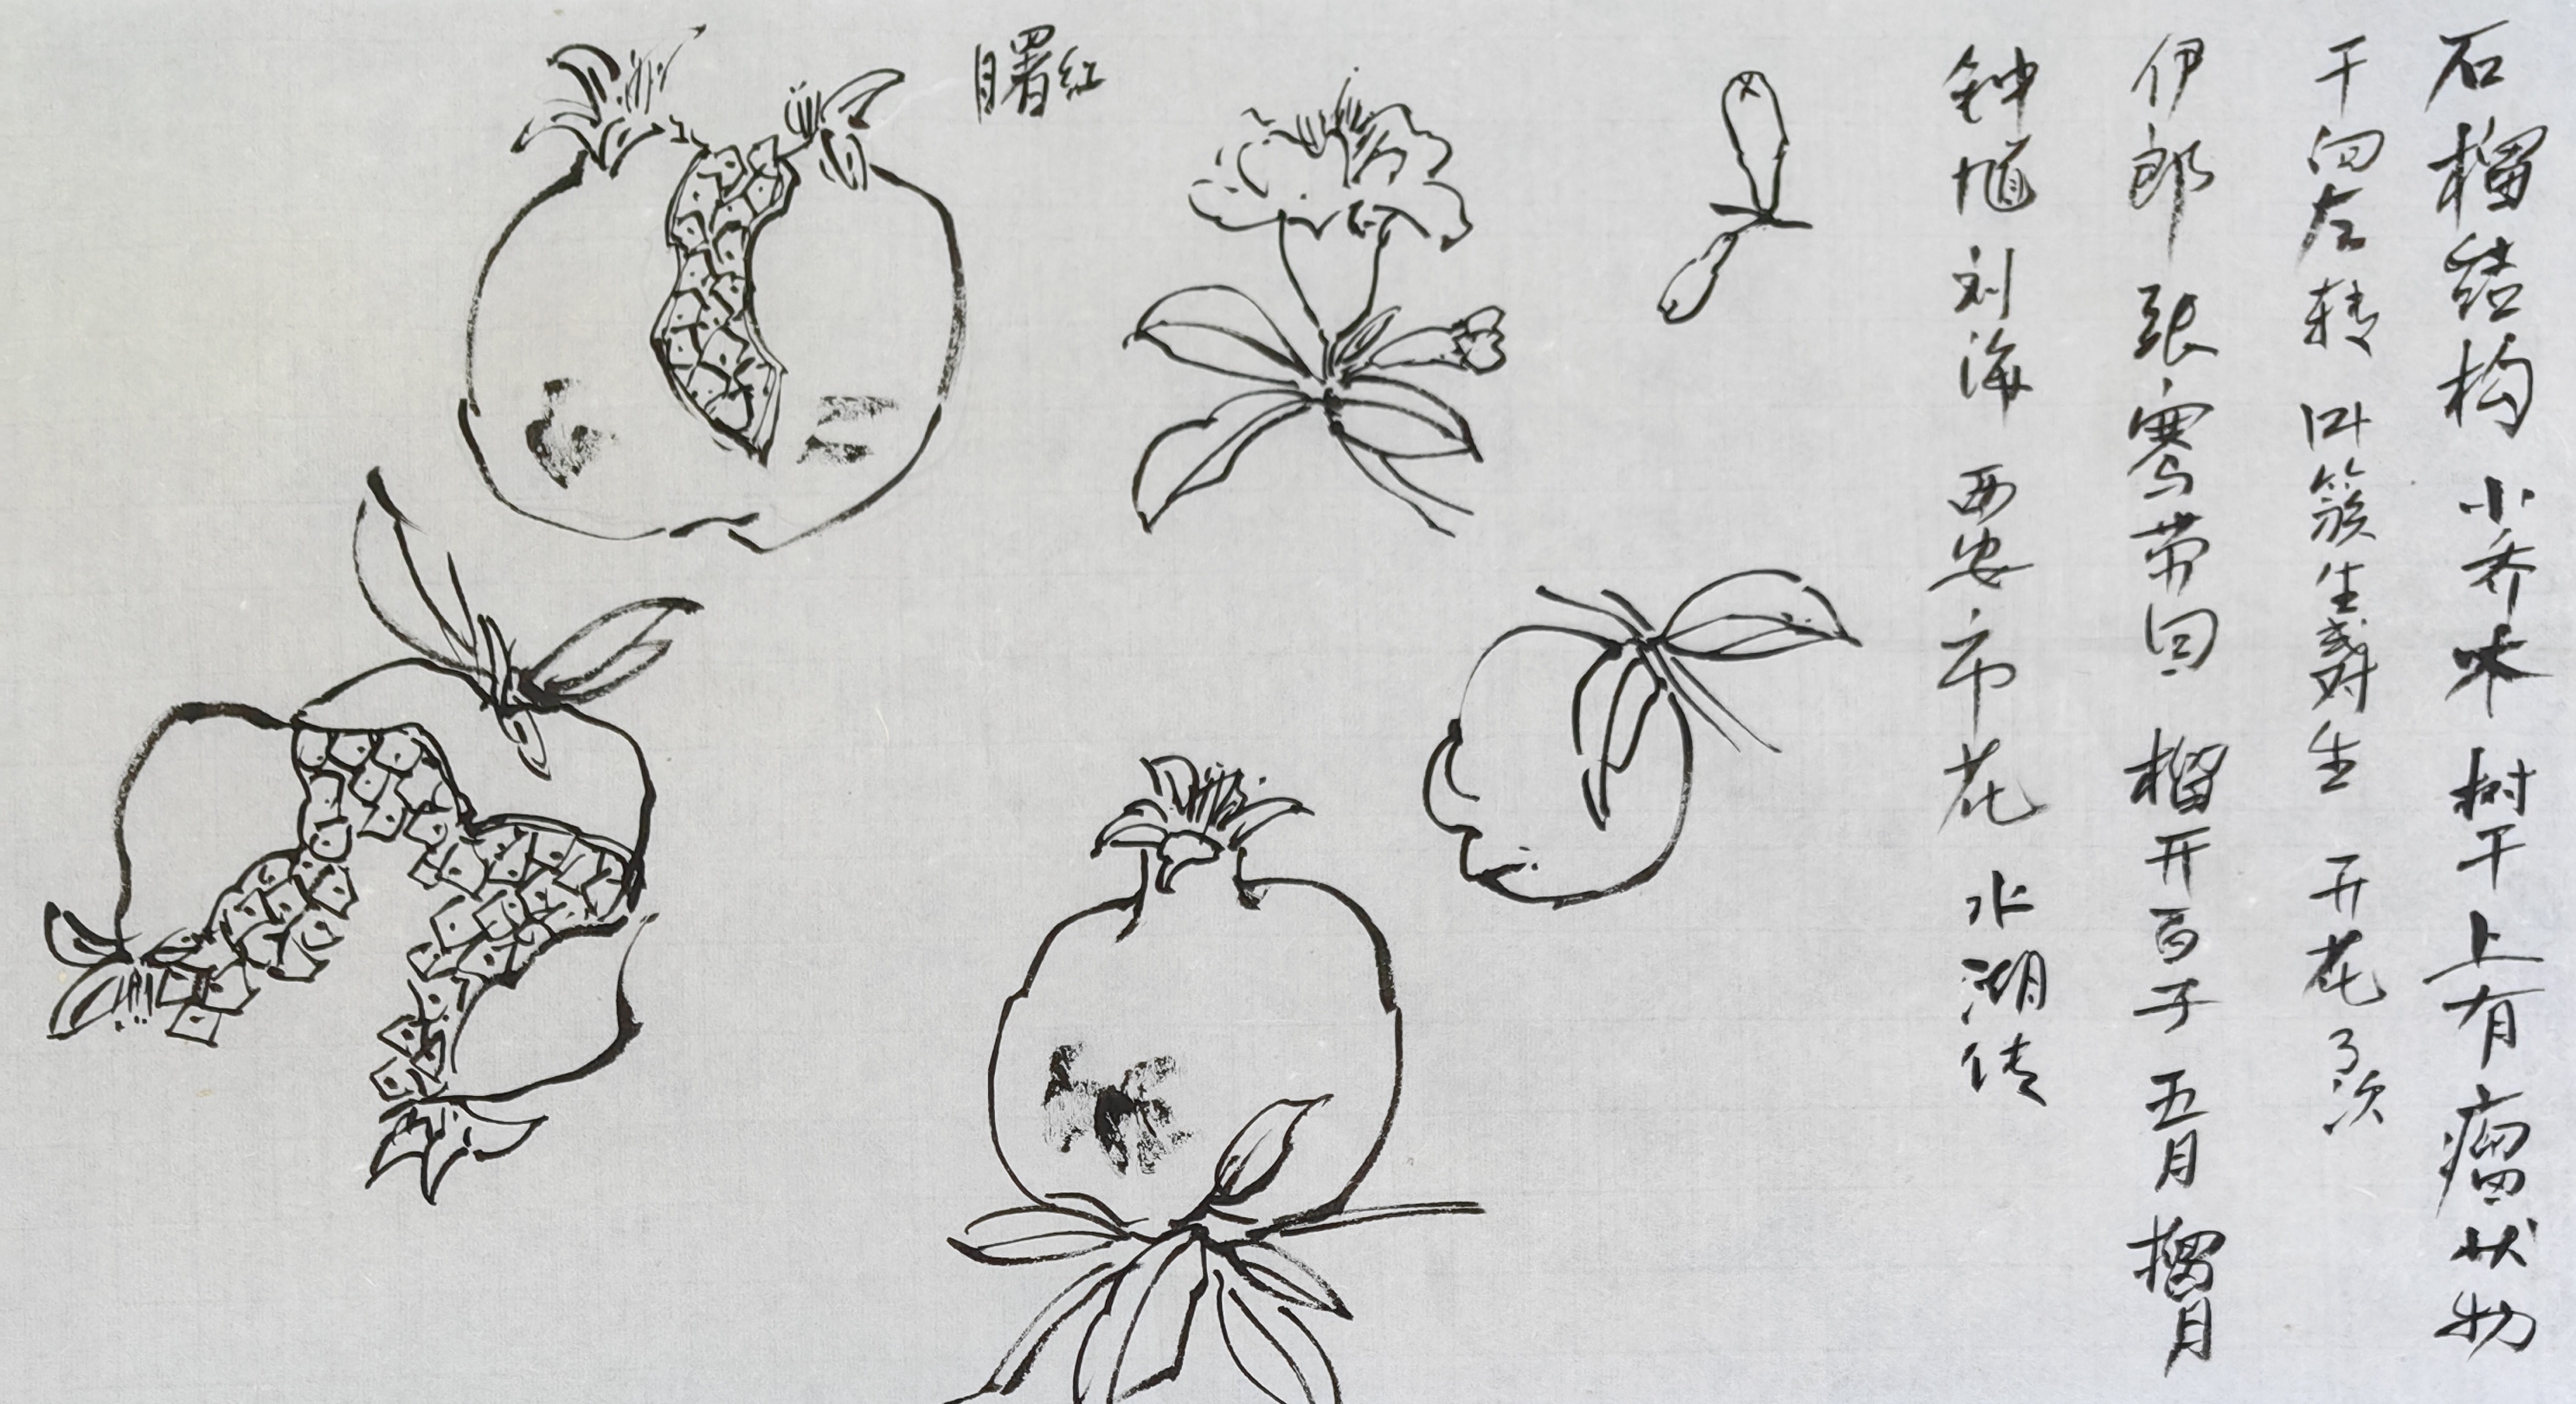 石榴结构 小乔木 树干上有瘤状物
干向左转 叶簇生或对生 开花3次
伊郎 张骞带回 榴开百子 五月榴月
钟馗 刘海 西安市花 水浒传
曙红